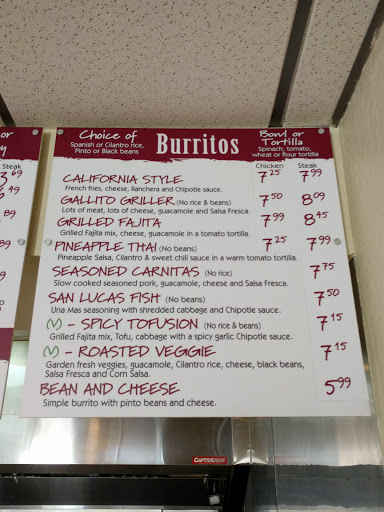 or
y
Steak
3 69
6 49
89
89
9
0
Choice of
Spanish or Cilantro rice,
Pinto or Black beans
Burritos
Bowl or
Tortilla
Spinach, tomato,
wheat or flour tortilla
Chicken Steak
CALIFORNIA STYLE 7 25 7 99
French fries, cheese, Ranchera and Chipotle sauce.
GALLITO GRILLER (No rice & beans) 7 50 8 09
Lots of meat, lots of cheese, guacamole and Salsa Fresca.
GRILLED FAJITA 7 99 8 45
Grilled Fajita mix, cheese, guacamole in a tomato tortilla.
PINEAPPLE THAI (No beans) 7 25 7 99
Pineapple Salsa, Cilantro & sweet chili sauce in a warm tomato tortilla.
SEASONED CARNITAS (No rice) 7 75
Slow cooked seasoned pork, guacamole, cheese and Salsa Fresca.
SAN LUCAS FISH (No beans) 7 50
Una Mas seasoning with shredded cabbage and Chipotle sauce.
(V) - SPICY TOFUSION (No rice & beans) 7 15
Grilled Fajita mix, Tofu, cabbage with a spicy garlic Chipotle sauce.
(V) - ROASTED VEGGIE 7 15
Garden fresh veggies, guacamole, Cilantro rice, cheese, black beans,
Salsa Fresca and Corn Salsa.
BEAN AND CHEESE 5 99
Simple burrito with pinto beans and cheese.
CAPTIVEAIRE